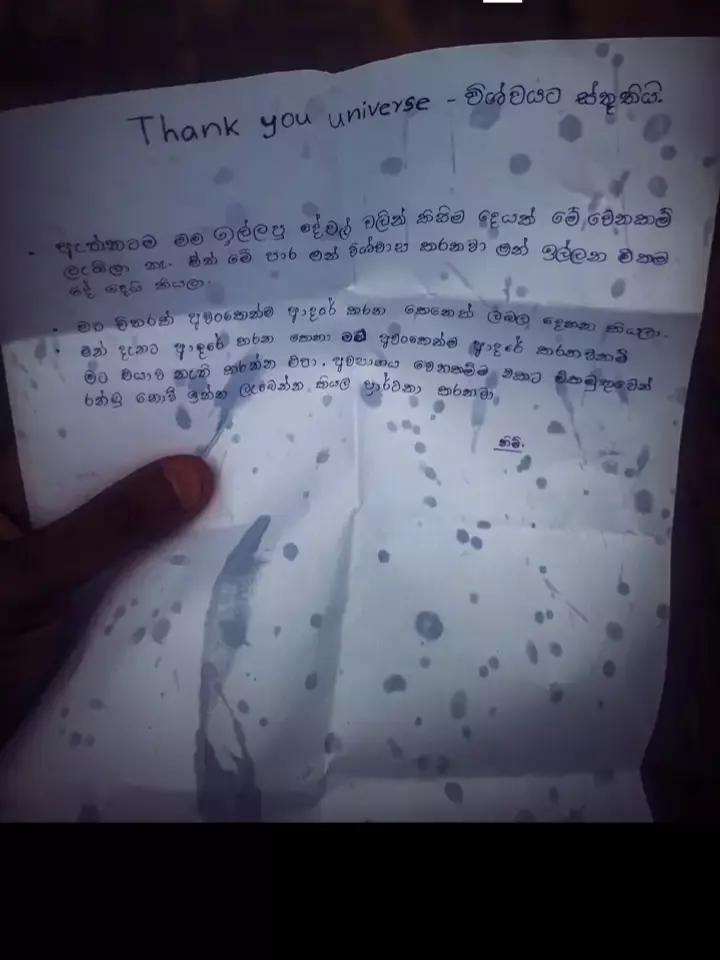 Thank you universe - විශ්වයට ස්තූතියි.
• ඇත්තටම මම ඉල්ලපු දේවල් වලින් කිසිම දෙයක් මේ වෙනකම්
ලැබිලා නෑ. ඒත් මේ පාර මන් විශ්වාස කරනවා මන් ඉල්ලන එකම
දේ දෙයි කියලා.
• මට විතරක් අවංකෙන්ම ආදරේ කරන කෙනෙක් ලබල දෙන්න කියලා.
• මන් දැනට ආදරේ කරන කෙනා මට අවංකෙන්ම ආදරේ කරනවනම්
මට එයාව නැති කරන්න එපා. අවසානය වෙනකම්ම එකට එකමුතුවෙන්
රන්ඩු නොවී ඉන්න ලැබෙන්න කියල ප්‍රාර්ථනා කරනවා
නිමි.